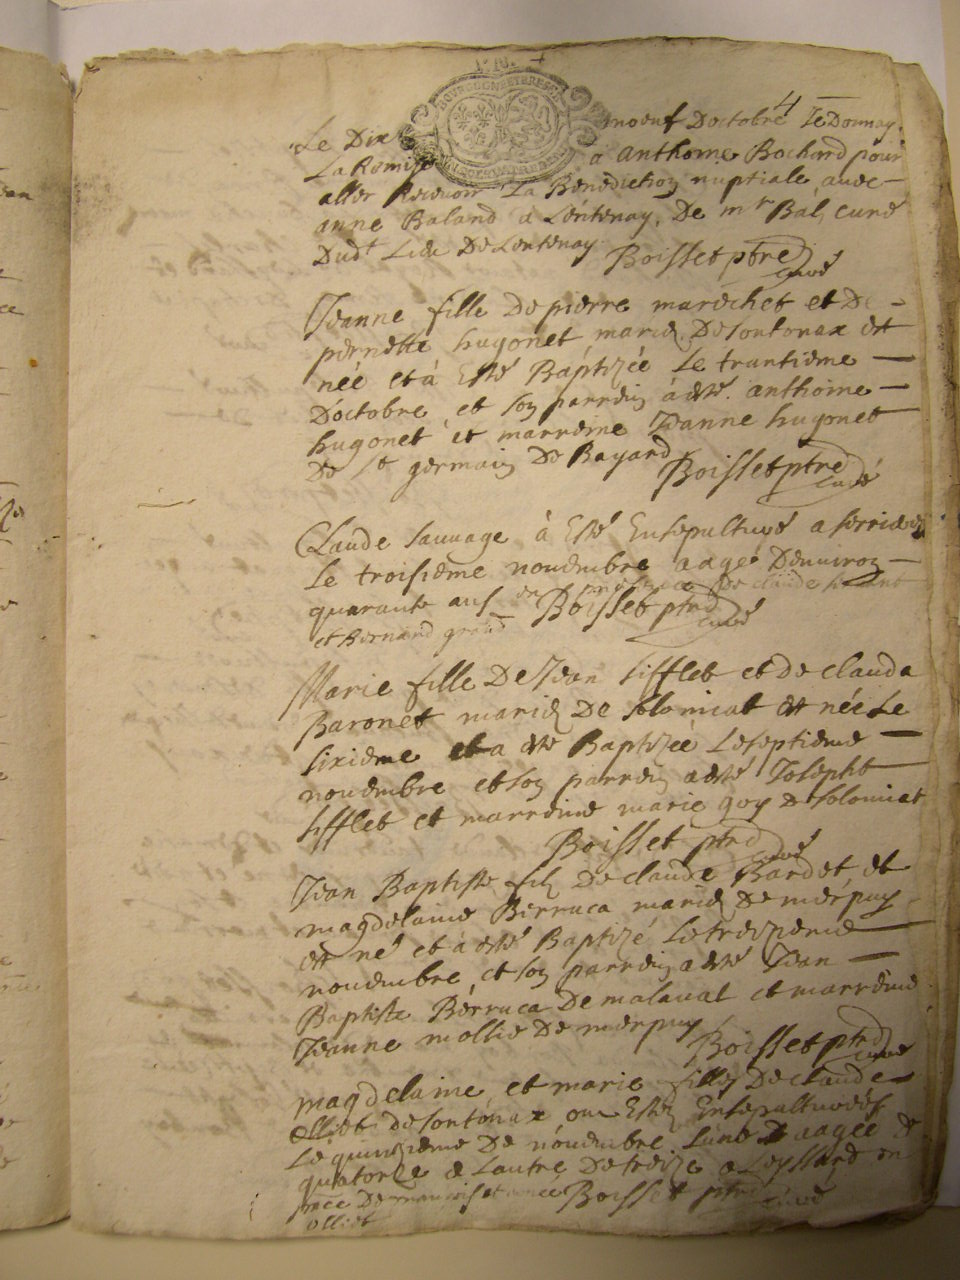 4
BOURGOGNE ET BRESSE
Le Dix noeuf Doctobre Je Donnay
La Remise a anthoine Bochard pour
aller Recevoir La Benediction nuptiale avec
anne Baland a Lentenay, De mr Bal, curé
Dudt Lieu De Lentenay Boisset ptre
curé
Jeanne fille De pierre marechet et De
pernette hugonet mariez De sontonax est
née et à Esté Baptizée Le trantieme
Doctobre et son parrein à esté anthoine
hugonet et marreine Jeanne hugonet
De St germain De Bayard Boisset ptre
curé
Claude sauvage à Esté Ensepulturé a
Le troisieme novembre aagé Denviron
quarante ans en De claude
Boisset ptre
et Bernard curé
Marie fille De Jean sifflet et De clauda
Baronet mariez De solomiat est née Le
sixieme et a esté Baptizée Le septieme
novembre et son parrein a esté Joseph
sifflet et marreine marie goy De solomiat
Boisset ptre
curé
Jean Baptiste filz De claude Bardet et
magdelaine Berruca mariez De merpuy
est né et à esté Baptizé Le treizieme
novembre, et son parrein a esté Jean
Baptiste Berruca De malaval et marreine
Jeanne mollie De merpuy
Boisset ptre
curé
magdelaine et marie filles De claude
olliet De sontonax ont Estez Ensepulturées
Le quinzieme De novembre Lune aagée de
quatorze & Lautre De treize a Leyssard en
Boisset ptre
olliet curé